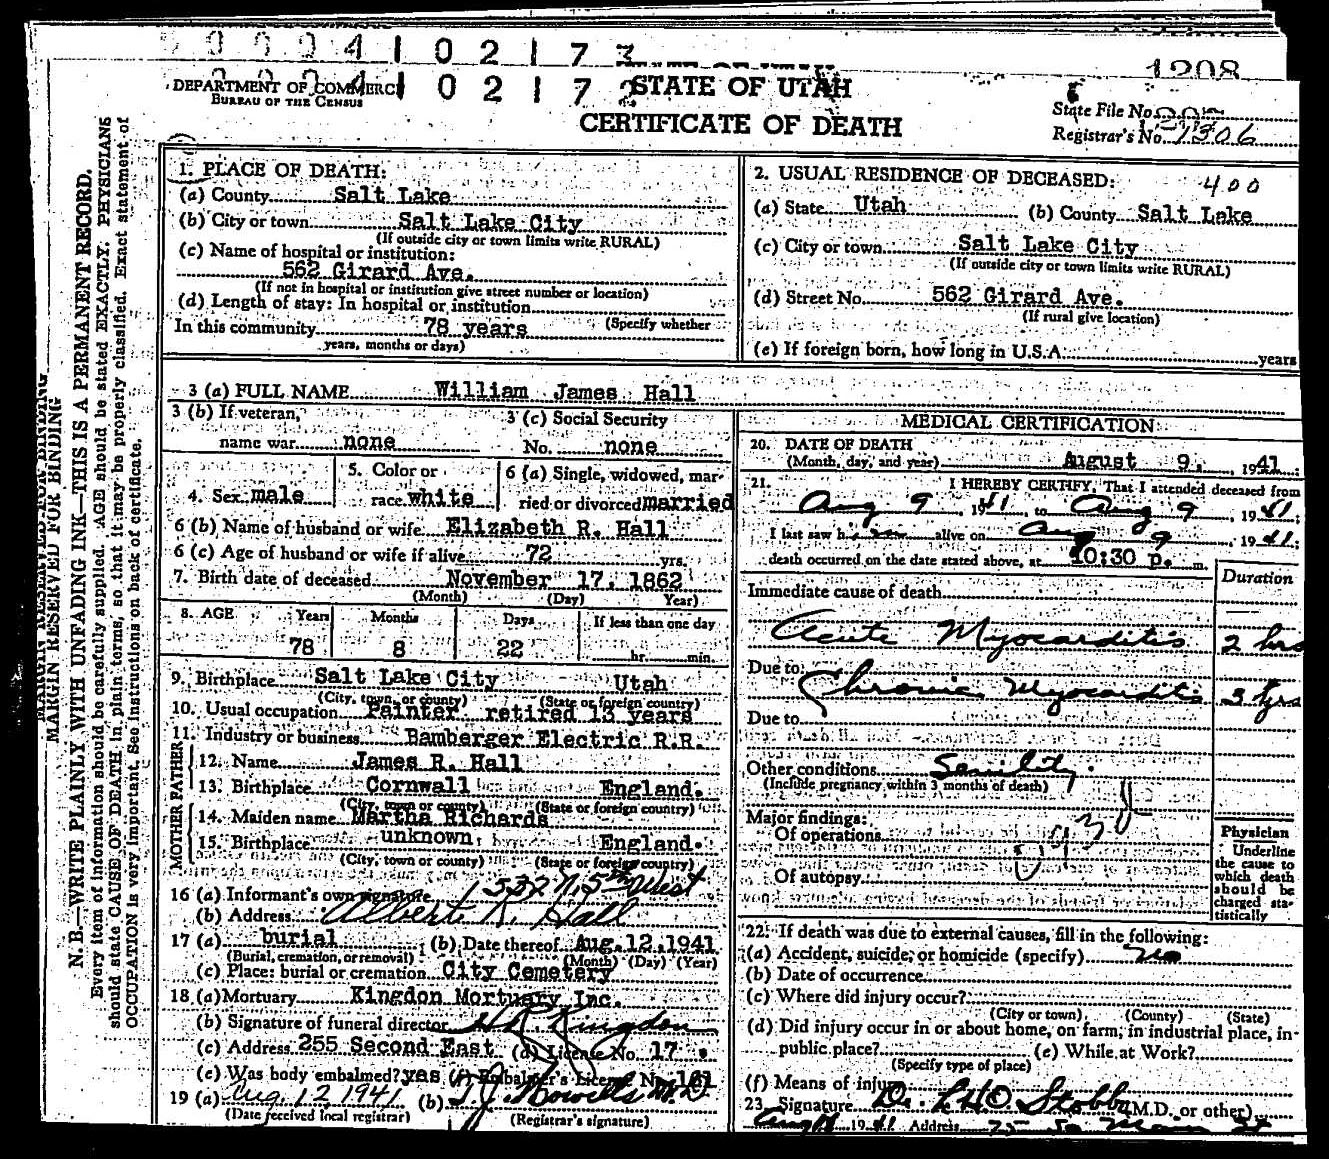 0 0 0 4 1 0 2 1 7 3
1208
DEPARTMENT OF COMMERCE 4 1 0 2 1 7 2 STATE OF UTAH
BUREAU OF THE CENSUS
CERTIFICATE OF DEATH
State File No.
Registrar's No. 1306
MARGIN RESERVED FOR BINDING
N. B.—WRITE PLAINLY WITH UNFADING INK—THIS IS A PERMANENT RECORD.
Every item of information should be carefully supplied. AGE should be stated EXACTLY. PHYSICIANS
should state CAUSE OF DEATH in plain terms, so that it may be properly classified. Exact statement of
OCCUPATION is very important. See instructions on back of certificate.
1. PLACE OF DEATH:
(a) County Salt Lake
(b) City or town Salt Lake City
(If outside city or town limits write RURAL)
(c) Name of hospital or institution:
562 Girard Ave.
(If not in hospital or institution give street number or location)
(d) Length of stay: In hospital or institution
In this community 78 years (Specify whether
years, months or days)
2. USUAL RESIDENCE OF DECEASED: 400
(a) State Utah (b) County Salt Lake
(c) City or town Salt Lake City
(If outside city or town limits write RURAL)
(d) Street No. 562 Girard Ave.
(If rural give location)
(e) If foreign born, how long in U.S.A. years
3 (a) FULL NAME William James Hall
3 (b) If veteran, 3 (c) Social Security
name war none No. none
4. Sex male 5. Color or race white 6 (a) Single, widowed, married or divorced married
6 (b) Name of husband or wife Elizabeth R. Hall
6 (c) Age of husband or wife if alive 72 yrs.
7. Birth date of deceased November 17, 1862
(Month) (Day) Year)
8. AGE Years Months Days If less than one day
78 8 22 hr. min.
9. Birthplace Salt Lake City Utah
(City, town, or county) (State or foreign country)
10. Usual occupation Painter retired 13 years
11. Industry or business Bamberger Electric R.R.
FATHER
12. Name James R. Hall
13. Birthplace Cornwall England.
(City, town or county) (State or foreign country)
MOTHER
14. Maiden name Martha Richards
15. Birthplace unknown, England.
(City, town or county) (State or foreign country)
16 (a) Informant's own signature 1532 N. 5th West
(b) Address Albert R. Hall
17 (a) burial (b) Date thereof Aug. 12, 1941
(Burial, cremation, or removal) (Month) (Day) (Year)
(c) Place: burial or cremation City Cemetery
18 (a) Mortuary Kingdon Mortuary Inc.
(b) Signature of funeral director Kingdon
(c) Address 255 Second East (d) License No. 17
(e) Was body embalmed? yes (f) Embalmer's License No. 161
19 (a) Aug. 12 1941 (b) T.J. Howells M.D.
(Date received local registrar) (Registrar's signature)
MEDICAL CERTIFICATION
20. DATE OF DEATH
(Month, day, and year) August 9, 1941
21. I HEREBY CERTIFY, That I attended deceased from
Aug 9, 1941, to Aug 9, 1941;
I last saw him alive on Aug 9, 1941;
death occurred on the date stated above, at 10:30 p. m.
Duration
Immediate cause of death
Acute Myocarditis 2 hrs
Due to Chronic Myocarditis 3 yrs
Due to
Other conditions Senility.
(Include pregnancy within 3 months of death)
Major findings:
Of operations
Of autopsy
Physician
Underline
the cause to
which death
should be
charged sta-
tistically
22. If death was due to external causes, fill in the following:
(a) Accident, suicide, or homicide (specify) no
(b) Date of occurrence
(c) Where did injury occur?
(City or town) (County) (State)
(d) Did injury occur in or about home, on farm, in industrial place, in
public place? (e) While at Work?
(Specify type of place)
(f) Means of injury
23. Signature Dr. (M.D. or other)
1941 Address 75 So Main St